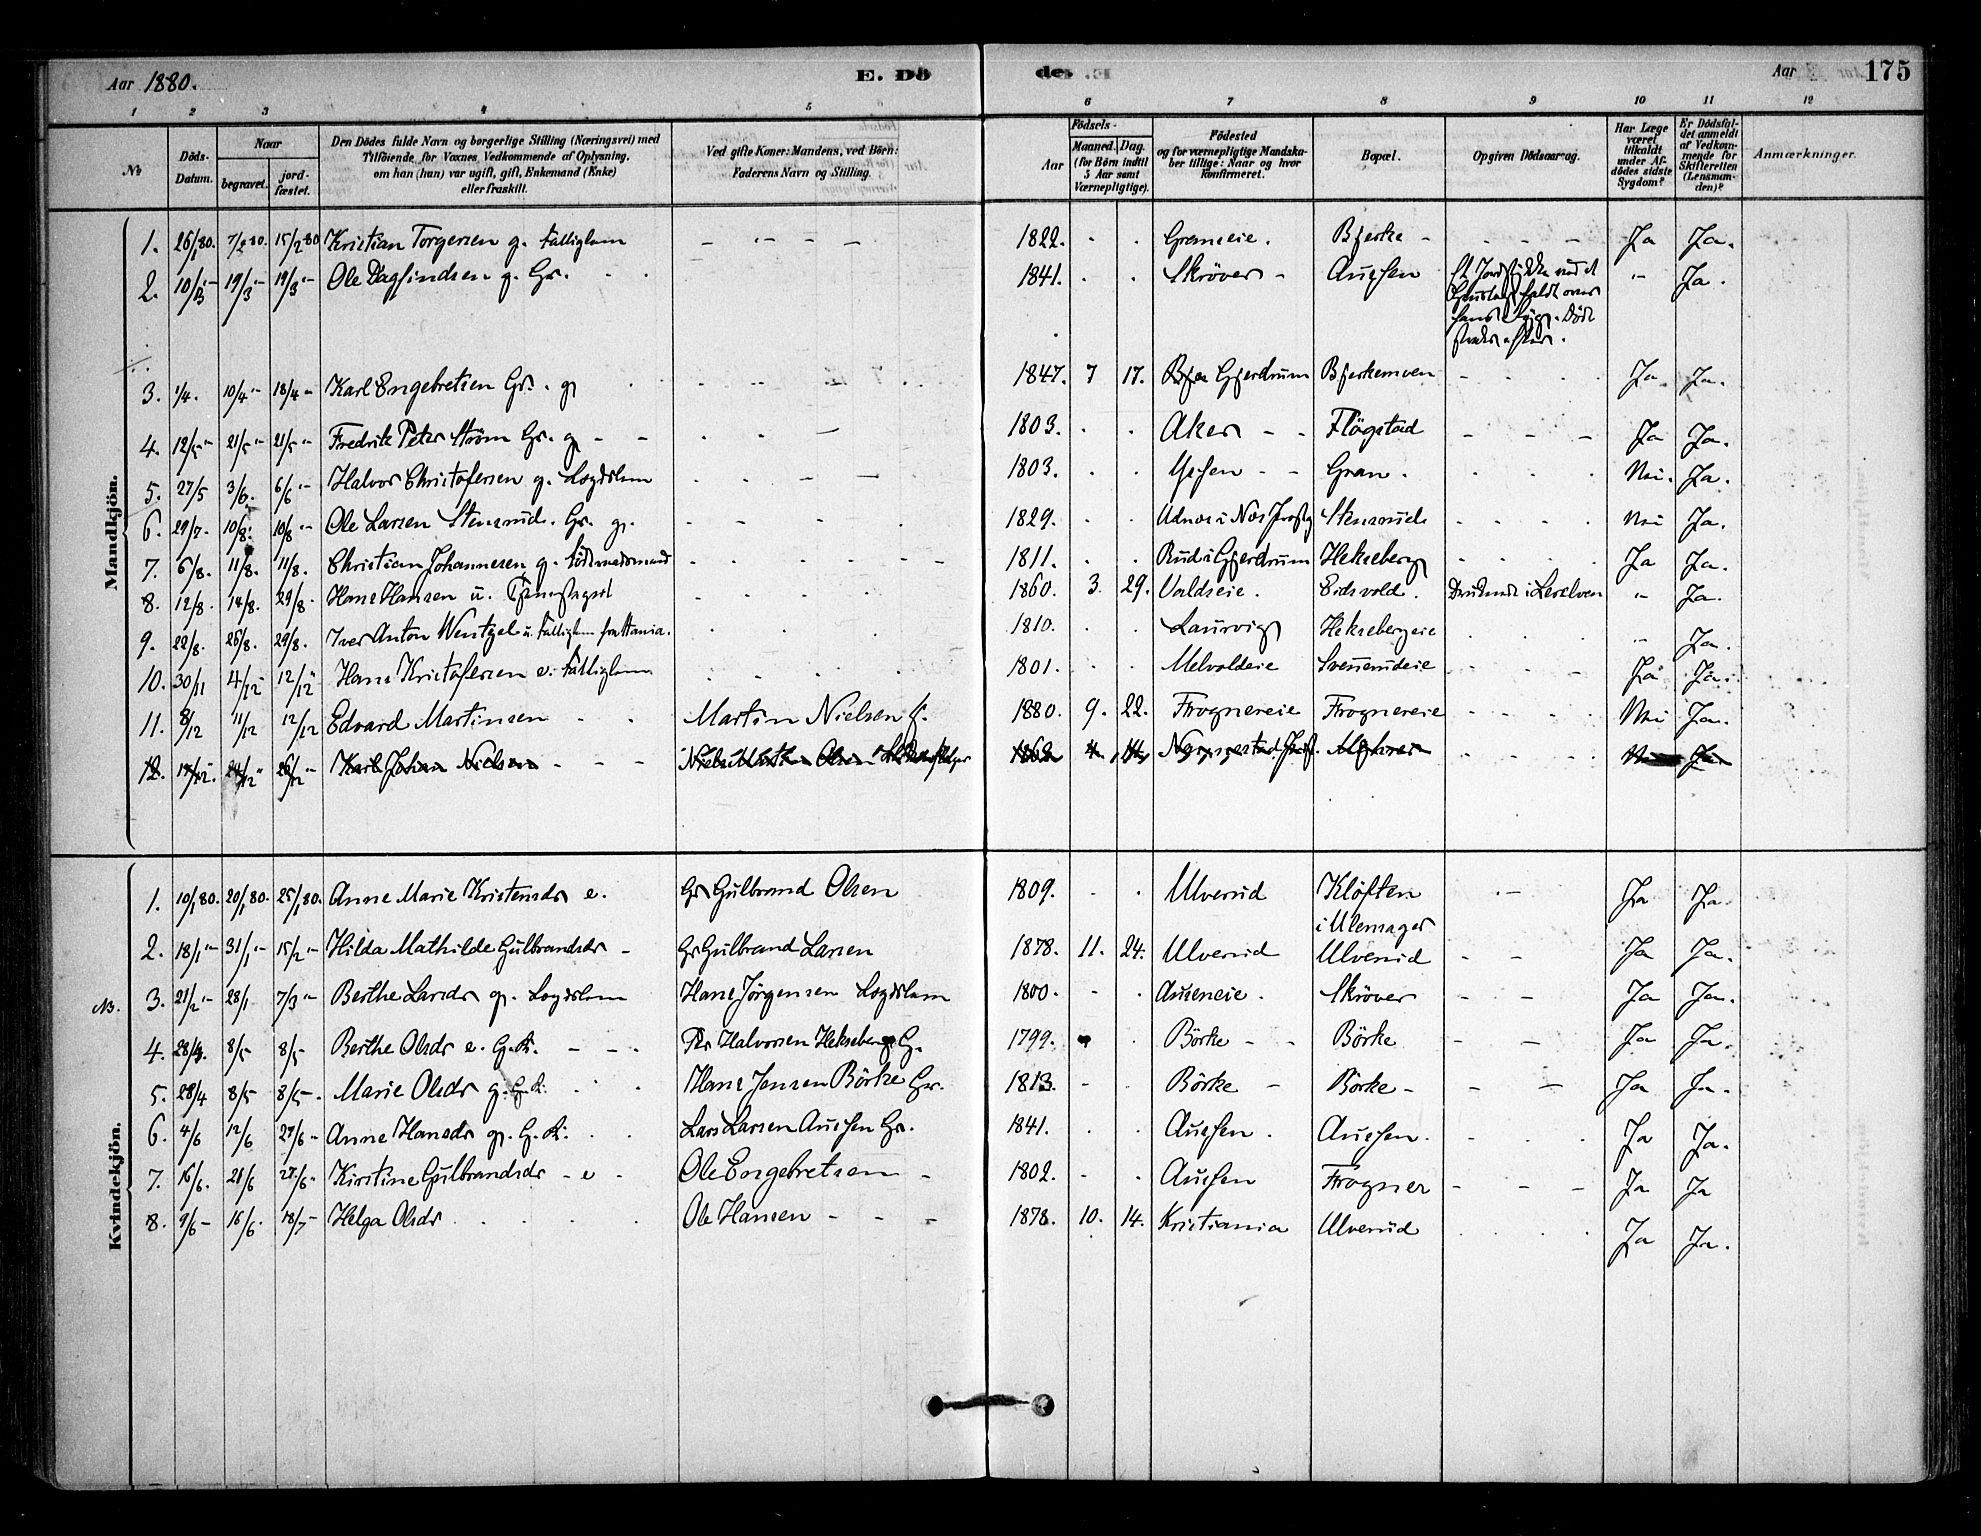 Aar 1880.
E. Dö
de.
Aar
175
1 2 3 4 5 6 7 8 9 10 11 12
No
Döds-Datum.
Naar
begravet.
jord-fæstet.
Den Dödes fulde Navn og borgerlige Stilling (Næringsvei) med
Tilföiende for Voxnes Vedkommende af Oplysning,
om han (hun) var ugift, gift, Enkemand (Enke)
eller fraskilt.
Ved gifte Koner: Mandens, ved Börn:
Faderens Navn og Stilling.
Födsels-
Aar
Maaned. Dag.
(for Börn indtil
5 Aar samt
Værnepligtige).
Födested
og for værnepligtige Mandska-
ber tillige: Naar og hvor
konfirmeret.
Bopæl.
Opgiven Dödsaarsag.
Har Læge
været
tilkaldt
under Af-
dödes sidste
Sygdom?
Er Dödsfal-
det anmeldt
af Vedkom-
mende for
Skifteretten
(Lensman-
den)?
Anmærkninger.
Mandkjön.
1. 26/1 80. 7/2 80. 15/2 80 Kristian Torgersen g. Fattiglem 1822. Bjerke Ja Ja.
2. 19/3 19/3 Ole Dagfindsen g. Gr. 1841. Skröver Ausen Ja.
3. 1/4. 10/4 18/4 Karl Engebretsen Gr. g 1847. 7 17. Gjerdrum Bjerkemoen Ja. Ja.
4. 12/5 21/5 21/5 Fredrik Peter Ström Gr. g 1803. Aker Flögstad Ja Ja.
5. 27/5 3/6. 6/6 Halvor Christofersen g. Lægdslem 1803. Gran. Nei. Ja.
6. 29/7. 10/8. 10/8 Ole Larsen Stensrud. Gr. g. 1829. Stensrud Nei Ja.
7. 6/8. 11/8. 11/8. Christian Johannesen g. Föderaadsmand 1811. Rud i Gjerdrum Hekseberg Ja Ja.
8. 12/8. 14/8. 29/8. Hans Hansen u. 1860. 3. 29. Valdseie. Eidsvold. Druknede i Leraelven Ja.
9. 22/8. 26/8. 29/8. Iver Anton Wentzel u. Fattiglem 1810. Laurvig Heksebergeie Ja.
10. 30/11 4/12 12/12 Hans Kristofersen e. Fattiglem 1801. Melvoldeie Ja Ja.
11. 8/12 11/12 12/12 Edvard Martinsen Martin Nielsen 1880. 9. 22. Frognereie Frognereie Nei Ja.
12. Karl Johan Nielsen 1862 Nei Ja.
Kvindekjön.
1. 10/1 80. 20/1 80. 25/1 80. Anne Marie Kristensdr e. Gr Gulbrand Olsen 1809. Ulverud Klöften Ja Ja
i Ulensager
2. 18/1 31/1 15/2 Hilda Mathilde Gulbrandsdr Gr Gulbrand Larsen 1878. 11. 24. Ulverud Ulverud Ja Ja.
NB. 3. 21/2 28/1 7/3 Berthe Larsdr g. Lægdslem Hans Jörgensen Lægdslem 1800. Auseneie. Skröver Ja Ja.
4. 8/5 8/5 Berthe Olsdr e. G.K. Per Halvorsen Hekseberg G. 1799. Börke Börke Ja Ja.
5. 28/4 8/5 8/5 Marie Olsdr g. G.K. Hans Jensen Börke Gr. 1813. Börke Börke Ja Ja.
6. 4/6 12/6 27/6 Anne Hansdr g. G.K. Lars Larsen Ausen Gr. 1841. Ausen. Ausen. Ja Ja.
7. 16/6. 26/6 27/6 Kirstine Gulbrandsdr e Ole Engebretsen 1802. Ausen Frogner Ja Ja
8. 9/6 16/6. 18/7 Helga Olsdr Ole Hansen 1878. 10. 14. Kristiania Ulverud Ja Ja.